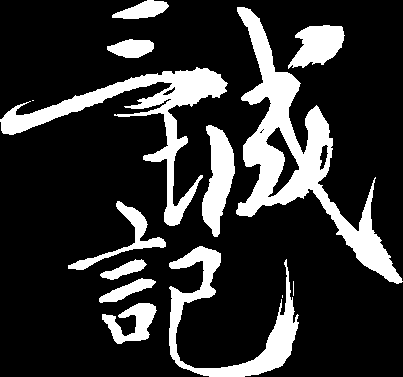 三城記